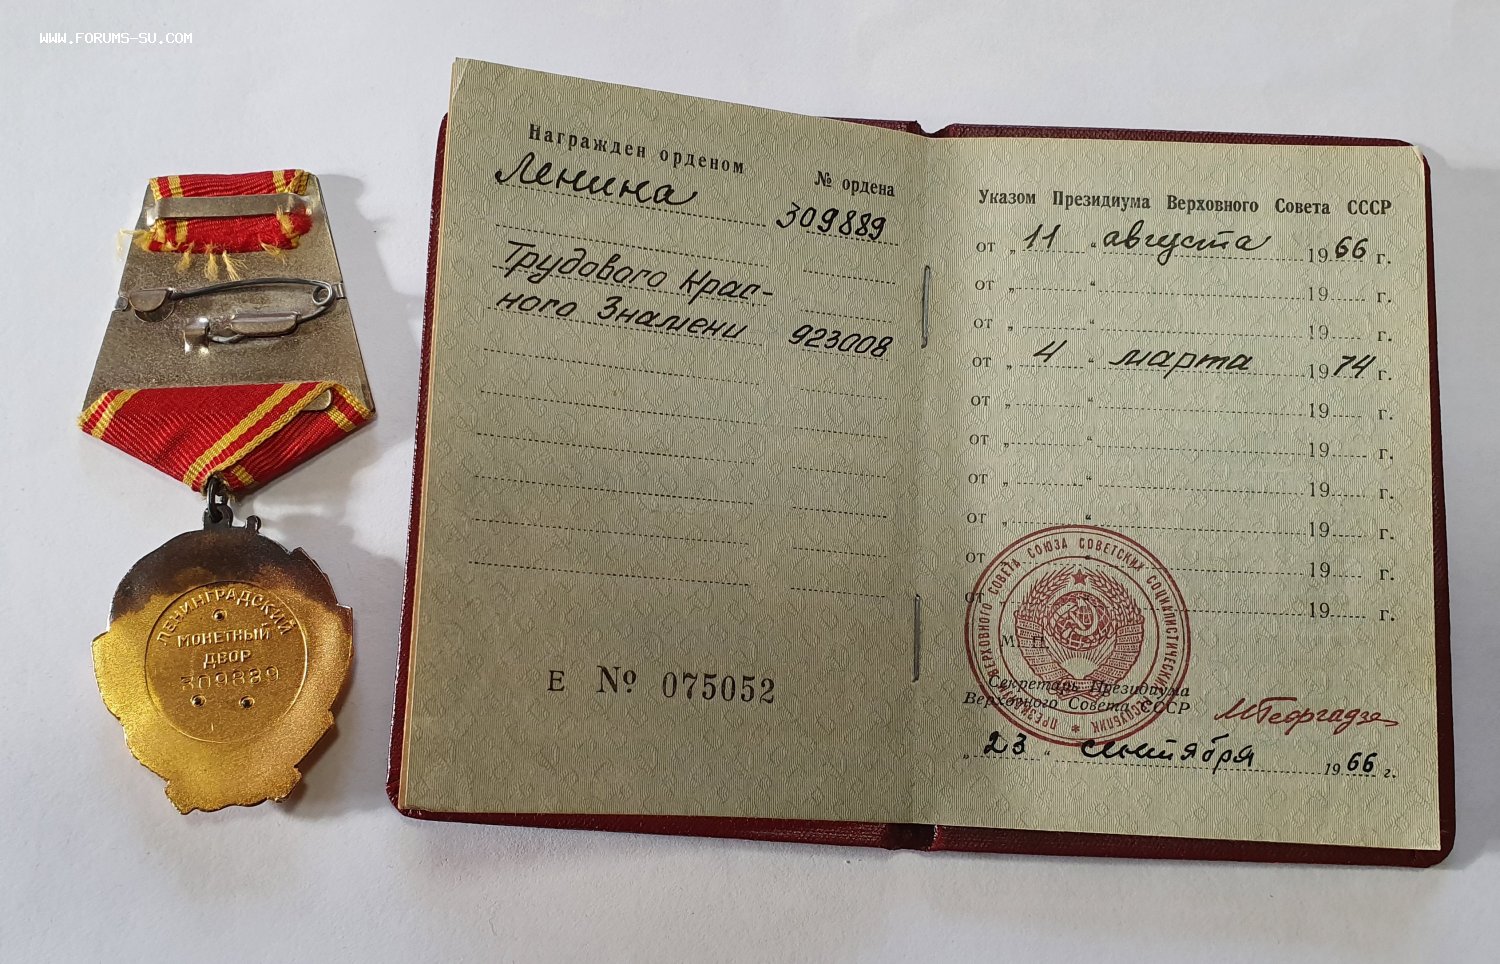 WWW.FORUMS-SU.COM
ЛЕНИНГРАДСКИЙ
МОНЕТНЫЙ
ДВОР
309889
Награжден орденом № ордена
Ленина 309889
Трудового Крас-
ного Знамени 923008
Е № 075052
Указом Президиума Верховного Совета СССР
от „ 11 “ августа 1966 г.
от „ “ 19 г.
от „ “ 19 г.
от „ 4 “ марта 1974 г.
от „ “ 19 г.
от „ “ 19 г.
от „ “ 19 г.
от „ “ 19 г.
от „ “ 19 г.
от „ “ 19 г.
М. П.
ПРЕЗИДИУМ ВЕРХОВНОГО СОВЕТА СОЮЗА СОВЕТСКИХ СОЦИАЛИСТИЧЕСКИХ РЕСПУБЛИК
Секретарь Президиума
Верховного Совета СССР
МГеоргадзе
„ 23 “ сентября 1966 г.